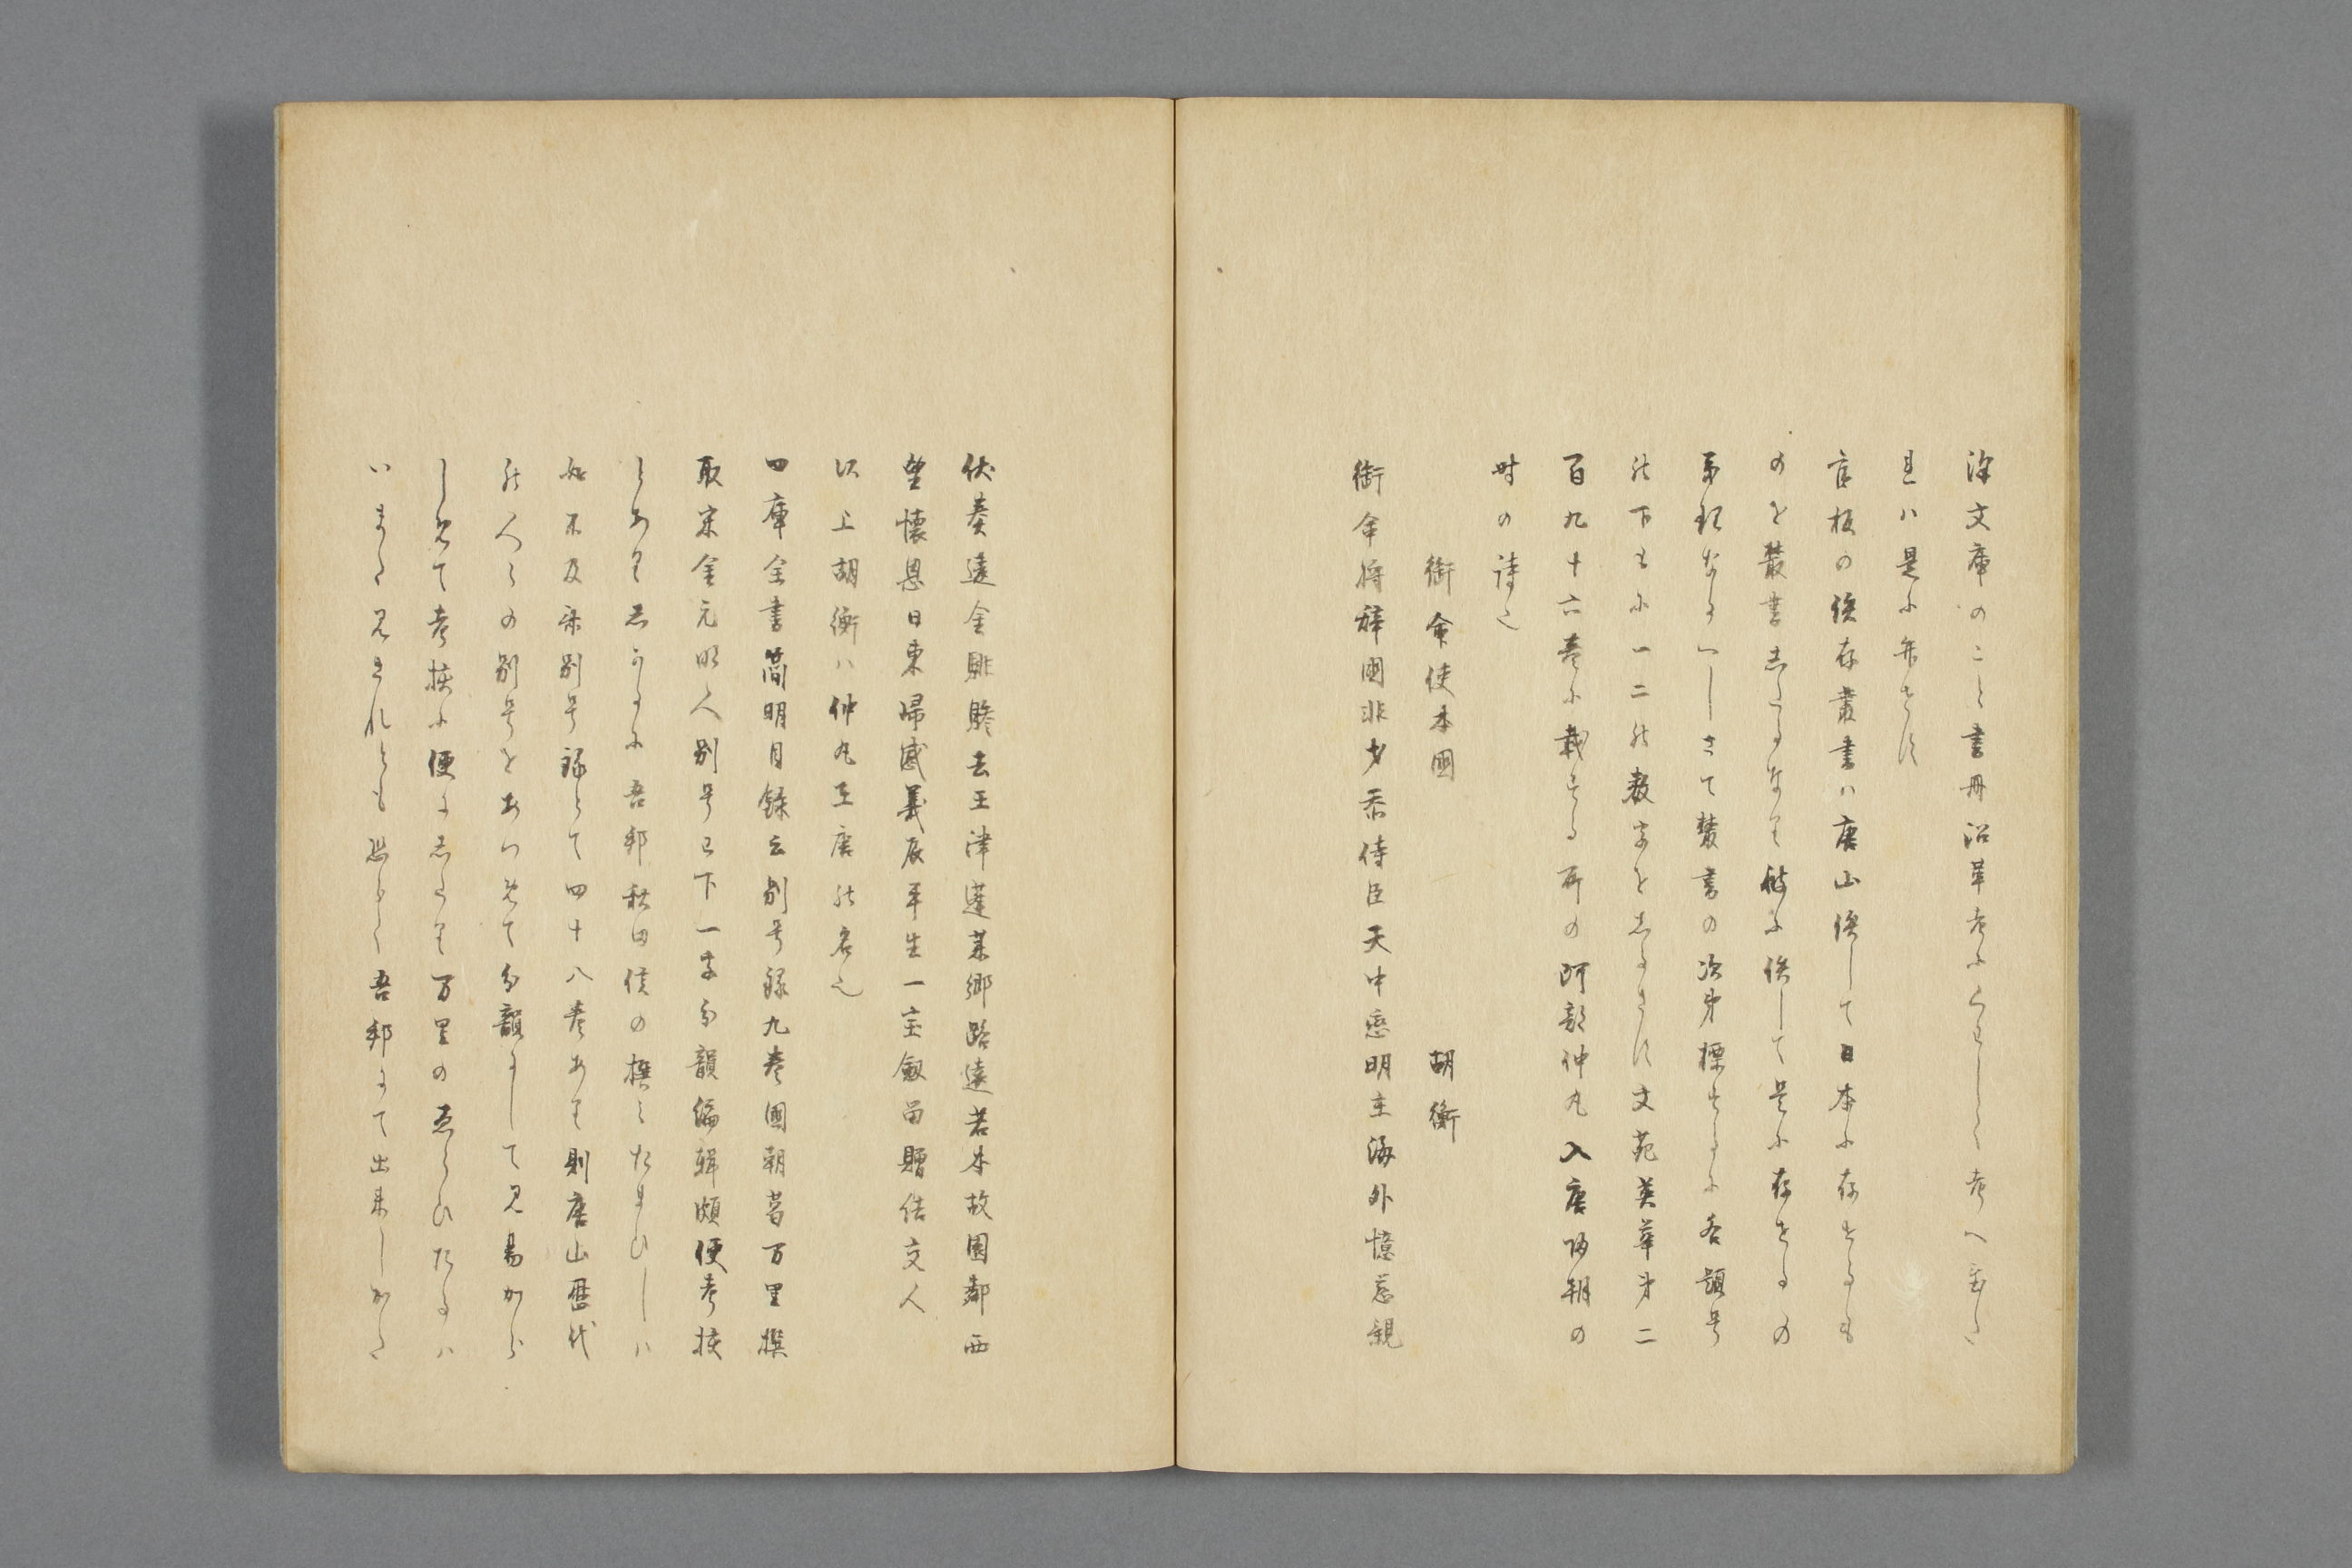 澤文庫のこと書冊沿革考にくはしく考へ置た
れハ是に弁せす
官板の佚存叢書ハ唐山佚して日本に存せるも
のを叢書したるなり彼に佚して是に存せるの
第な へしさて叢書の次第標せるに各題号
の下もに一二の数字をしるさす文苑英華第二
百九十六巻に載する所の阿部仲丸入唐帰朝の
時の詩也
銜命使本國 胡衡
銜命将辞國非才忝侍臣天中恋明主海外憶慈親
伏奏違金闕騑驂去玉津蓬莱郷路遠若木故園鄰西
望懐恩日東帰感義辰平生一宝劔留贈結交人
以上胡衡ハ仲丸在唐の名也
四庫全書簡明目録云別号録九巻國朝葛万里撰
取宋金元明人別号已下一字分韻編輯頗便考挍
とありしかるに吾邦秋田侯の撰ミたまひしハ
始不及采別号録とて四十八巻あり則唐山歴代
の人々の別号をあつめて分韻にして見易から
しめて考挍に便にしたり万里のゑらひたるハ
いまた見されとも恐らく吾邦にて出来しかた